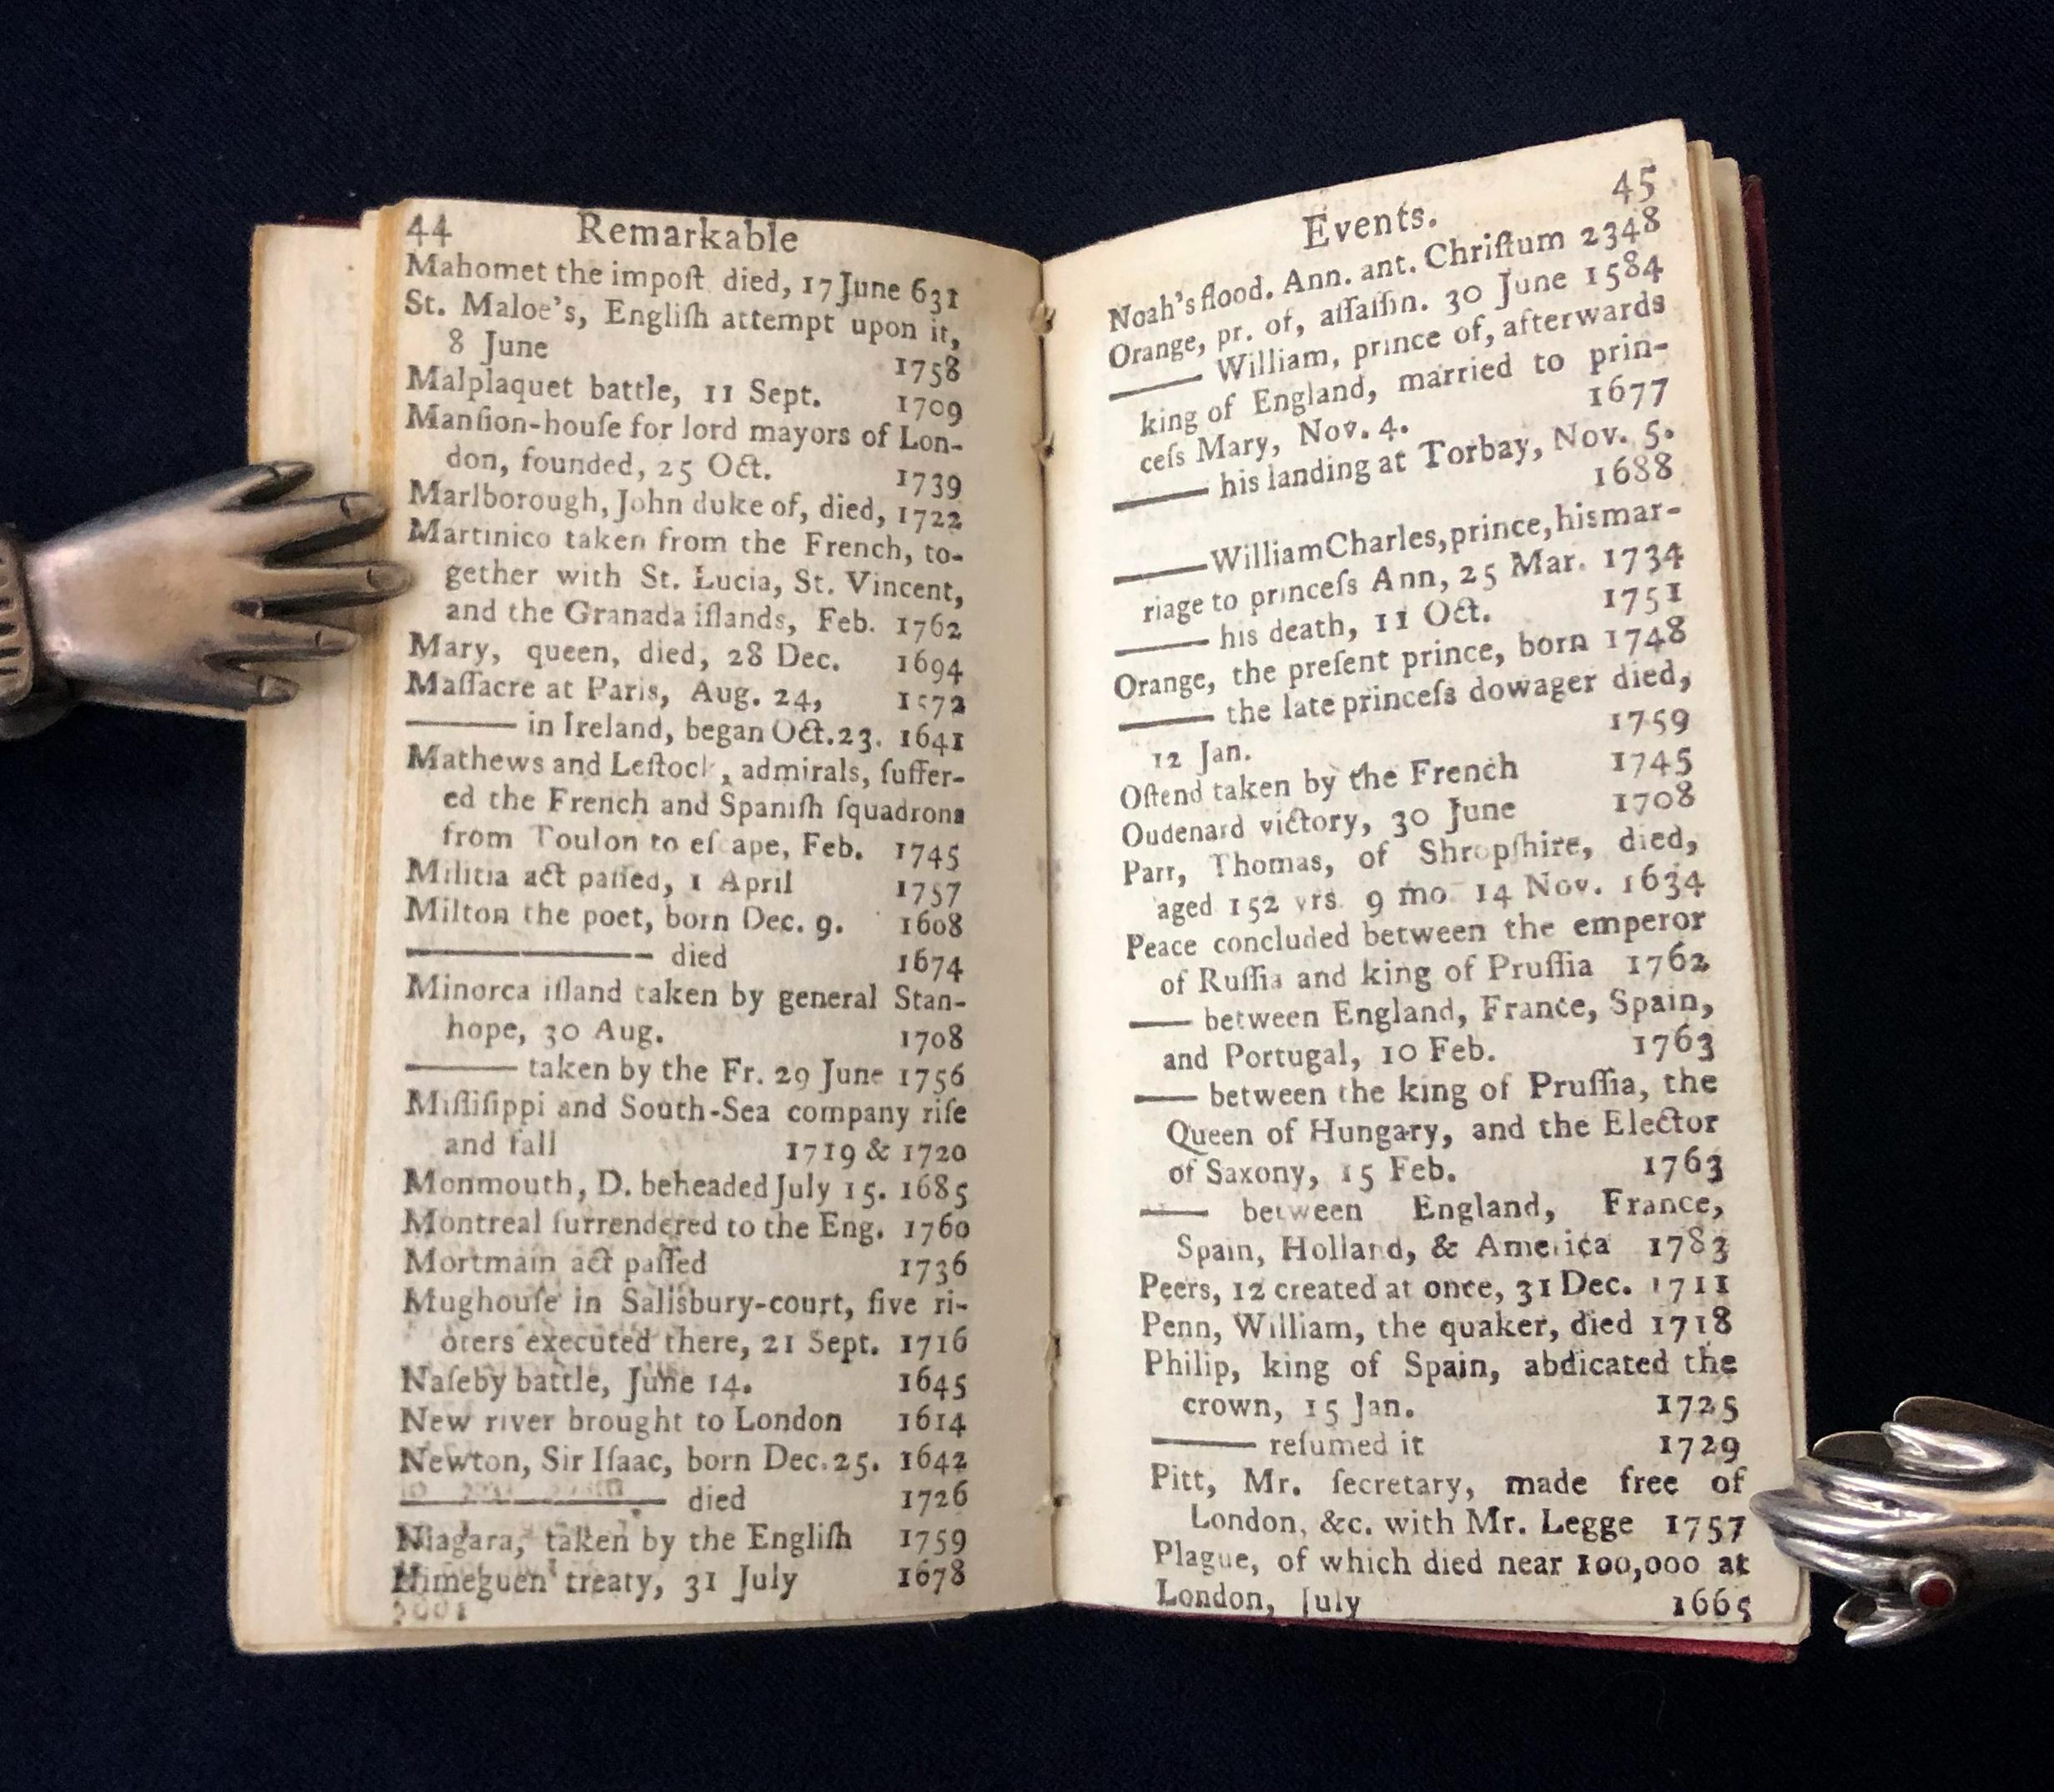 44 Remarkable
Mahomet the impoſt. died, 17 June 631
St. Maloe's, Engliſh attempt upon it,
8 June 1758
Malplaquet battle, 11 Sept. 1709
Manſion-houſe for lord mayors of Lon-
don, founded, 25 Oct. 1739
Marlborough, John duke of, died, 1722
Martinico taken from the French, to-
gether with St. Lucia, St. Vincent,
and the Granada iſlands, Feb. 1762
Mary, queen, died, 28 Dec. 1694
Maſſacre at Paris, Aug. 24, 1572
—— in Ireland, began Oct. 23. 1641
Mathews and Leſtock, admirals, ſuffer-
ed the French and Spaniſh ſquadrons
from Toulon to eſcape, Feb. 1745
Militia act paſſed, 1 April 1757
Milton the poet, born Dec. 9. 1608
———— died 1674
Minorca iſland taken by general Stan-
hope, 30 Aug. 1708
—— taken by the Fr. 29 June 1756
Miſſiſippi and South-Sea company riſe
and fall 1719 & 1720
Monmouth, D. beheaded July 15. 1685
Montreal ſurrendered to the Eng. 1760
Mortmain act paſſed 1736
Mughouſe in Salisbury-court, five ri-
oters executed there, 21 Sept. 1716
Naſeby battle, June 14. 1645
New river brought to London 1614
Newton, Sir Iſaac, born Dec. 25. 1642
———— died 1726
Niagara, taken by the Engliſh 1759
Nimeguen treaty, 31 July 1678
Events. 45
Noah's flood. Ann. ant. Chriſtum 2348
Orange, pr. of, aſſaſſin. 30 June 1584
—— William, prince of, afterwards
king of England, married to prin-
ceſs Mary, Nov. 4. 1677
—— his landing at Torbay, Nov. 5.
1688
—— William Charles, prince, his mar-
riage to princeſs Ann, 25 Mar. 1734
—— his death, 11 Oct. 1751
Orange, the preſent prince, born 1748
—— the late princeſs dowager died,
12 Jan. 1759
Oſtend taken by the French 1745
Oudenard victory, 30 June 1708
Parr, Thomas, of Shropſhire, died,
aged 152 yrs. 9 mo. 14 Nov. 1634
Peace concluded between the emperor
of Ruſſia and king of Pruſſia 1762
—— between England, France, Spain,
and Portugal, 10 Feb. 1763
—— between the king of Pruſſia, the
Queen of Hungary, and the Elector
of Saxony, 15 Feb. 1763
—— between England, France,
Spain, Holland, & America 1783
Peers, 12 created at once, 31 Dec. 1711
Penn, William, the quaker, died 1718
Philip, king of Spain, abdicated the
crown, 15 Jan. 1725
—— reſumed it 1729
Pitt, Mr. ſecretary, made free of
London, &c. with Mr. Legge 1757
Plague, of which died near 100,000 at
London, July 1665